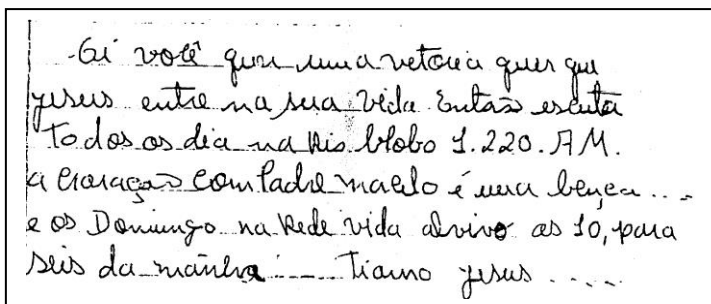 Gi você quer uma vetoria quer que
jesus entre na sua vida Então escuta
Todos os dia na Rio Globo 1.220.AM.
a Coração com Padre marcelo é uma bença...
e os Domingo na Rede vida alvivo as 10, para
seis da manhã ... Tiamo jesus .....